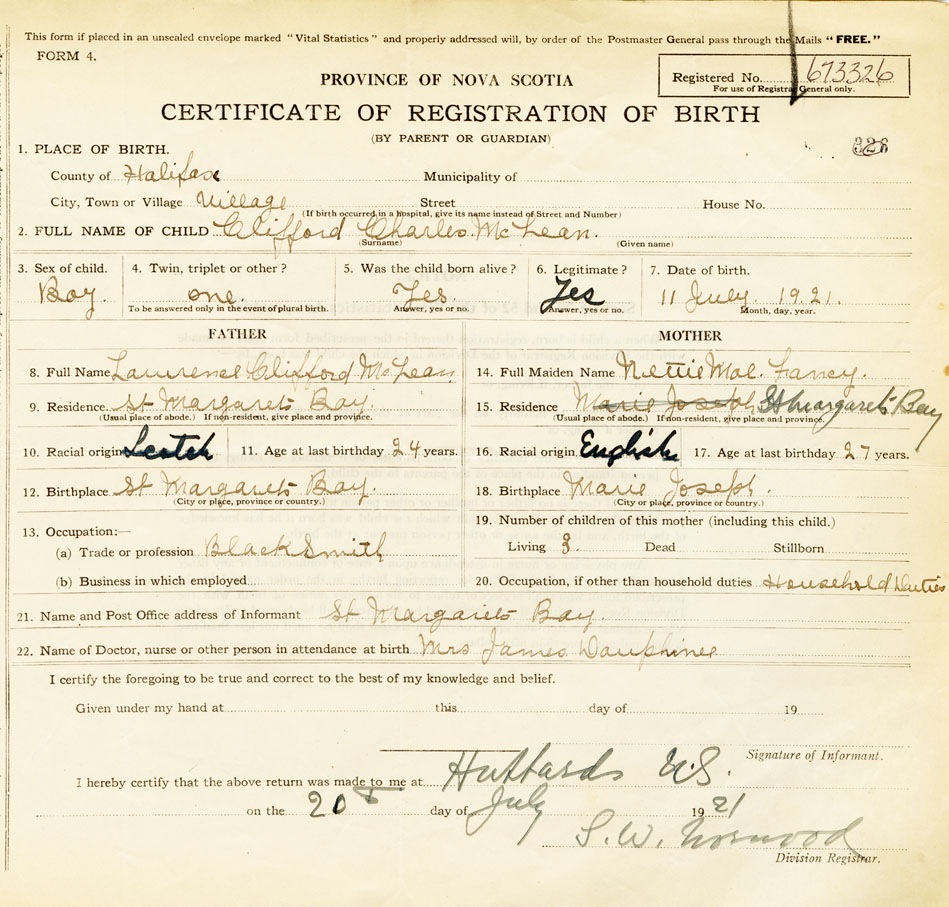 This form if placed in an unsealed envelope marked "Vital Statistics" and properly addressed will, by order of the Postmaster General pass through the Mails "FREE."
FORM 4.
PROVINCE OF NOVA SCOTIA
Registered No. 673326
For use of Registrar General only.
CERTIFICATE OF REGISTRATION OF BIRTH
(BY PARENT OR GUARDIAN)
326
1. PLACE OF BIRTH.
County of Halifax Municipality of
City, Town or Village Village Street House No.
(If birth occurred in a hospital, give its name instead of Street and Number)
2. FULL NAME OF CHILD Clifford Charles McLean.
(Surname) (Given name)
3. Sex of child. 4. Twin, triplet or other? 5. Was the child born alive? 6. Legitimate? 7. Date of birth.
Boy. one. Yes. Yes 11 July 1921.
To be answered only in the event of plural birth. Answer, yes or no. Answer, yes or no. Month, day, year.
FATHER
8. Full Name Lawrence Clifford McLean
9. Residence St Margarets Bay.
(Usual place of abode.) If non-resident, give place and province.
10. Racial origin Scotch 11. Age at last birthday 24 years.
12. Birthplace St Margarets Bay.
(City or place, province or country.)
13. Occupation:—
(a) Trade or profession Black Smith
(b) Business in which employed
MOTHER
14. Full Maiden Name Nettie Mae. Fancy.
15. Residence Marie Joseph St Margarets Bay
(Usual place of abode.) If non-resident, give place and province.
16. Racial origin English 17. Age at last birthday 27 years.
18. Birthplace Marie Joseph.
(City or place, province or country.)
19. Number of children of this mother (including this child.)
Living 3. Dead Stillborn
20. Occupation, if other than household duties Household Duties
21. Name and Post Office address of Informant St Margarets Bay.
22. Name of Doctor, nurse or other person in attendance at birth Mrs James Dauphinee
I certify the foregoing to be true and correct to the best of my knowledge and belief.
Given under my hand at this day of 19
Signature of Informant.
I hereby certify that the above return was made to me at Hubbards N.S.
on the 20 day of July 1921
S. W. Norwood
Division Registrar.